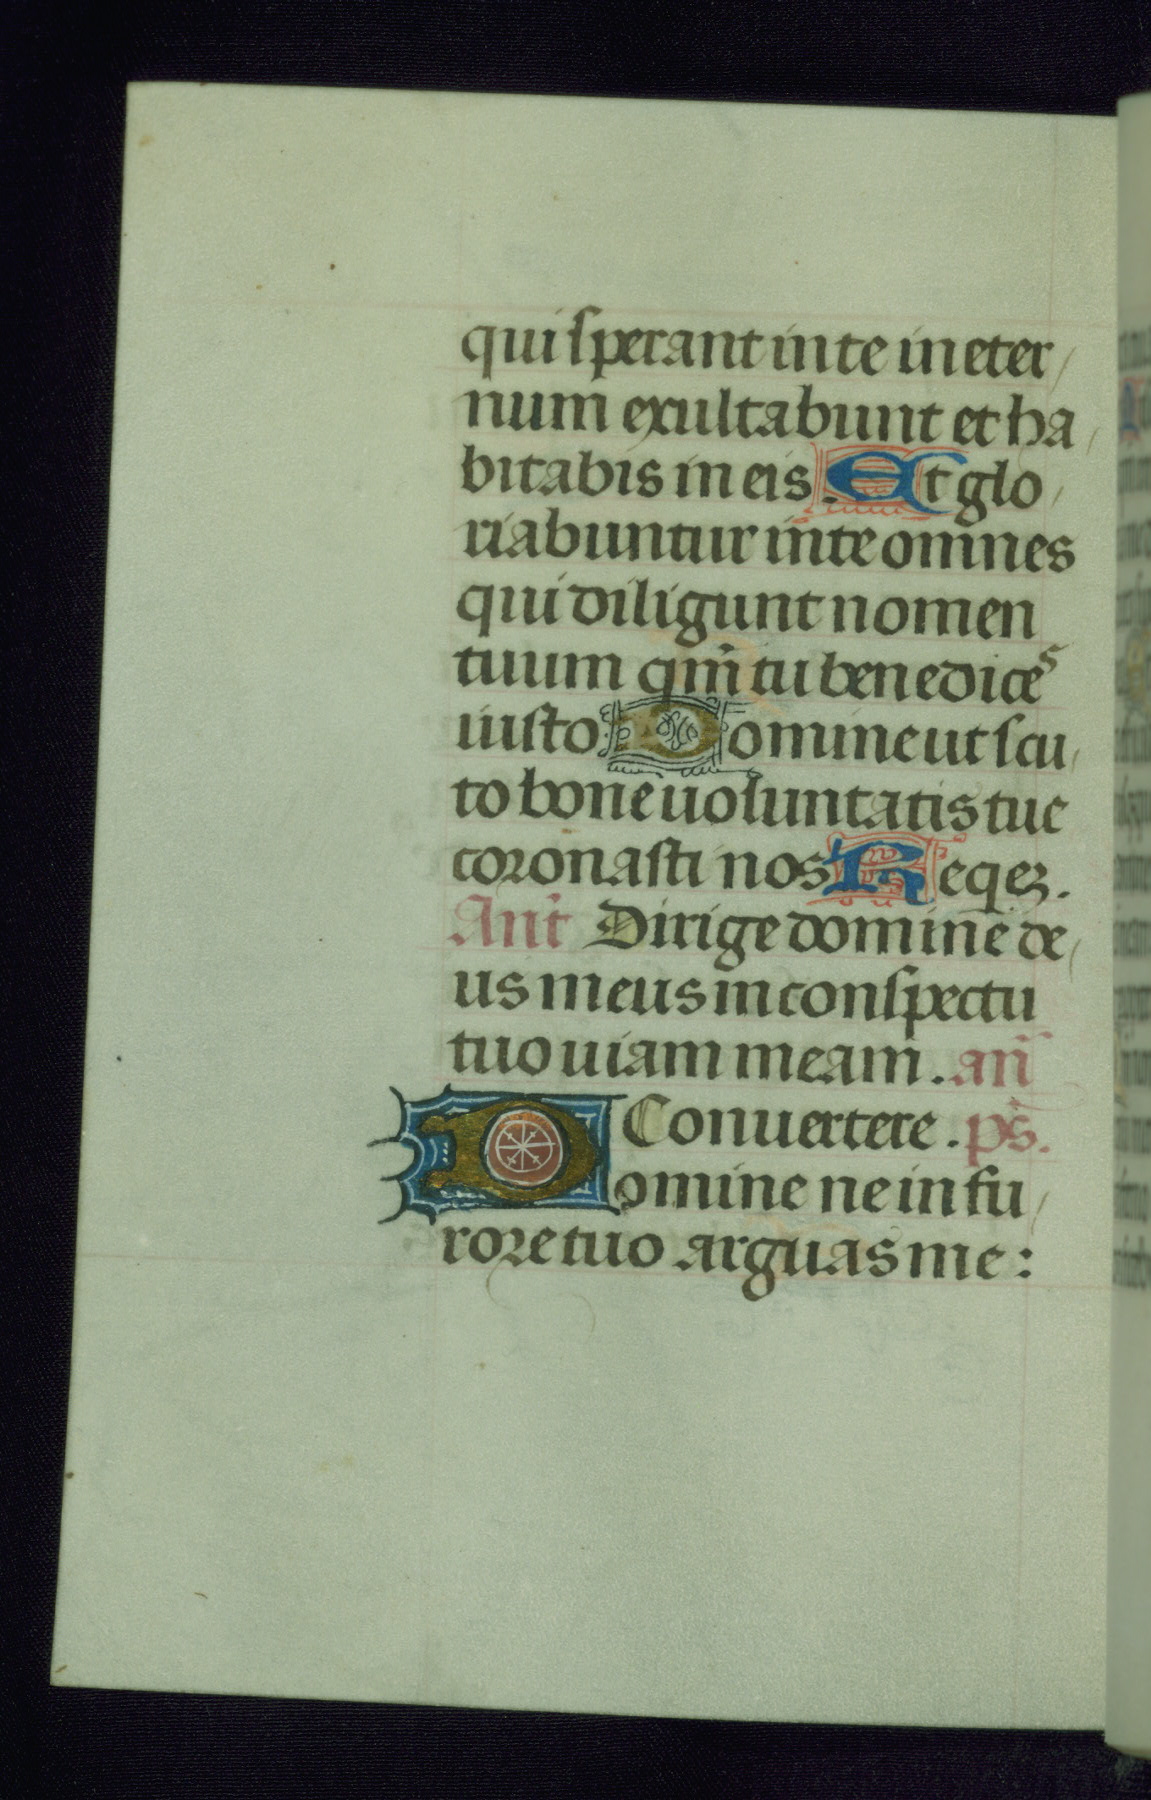 qui sperant in te in eter/
num exultabunt et ha/
bitabis in eis. Et glo/
riabuntur in te omnes
qui diligunt nomen
tuum qm̄ tu benedices
iusto Domine ut scu/
to bone uoluntatis tue
coronasti nos Reqez.
Ant̄ Dirige domine de/
us meus in conspectu
tuo uiam meam. an̄
Conuertere. ps̄.
Domine ne in fu/
rore tuo arguas me: